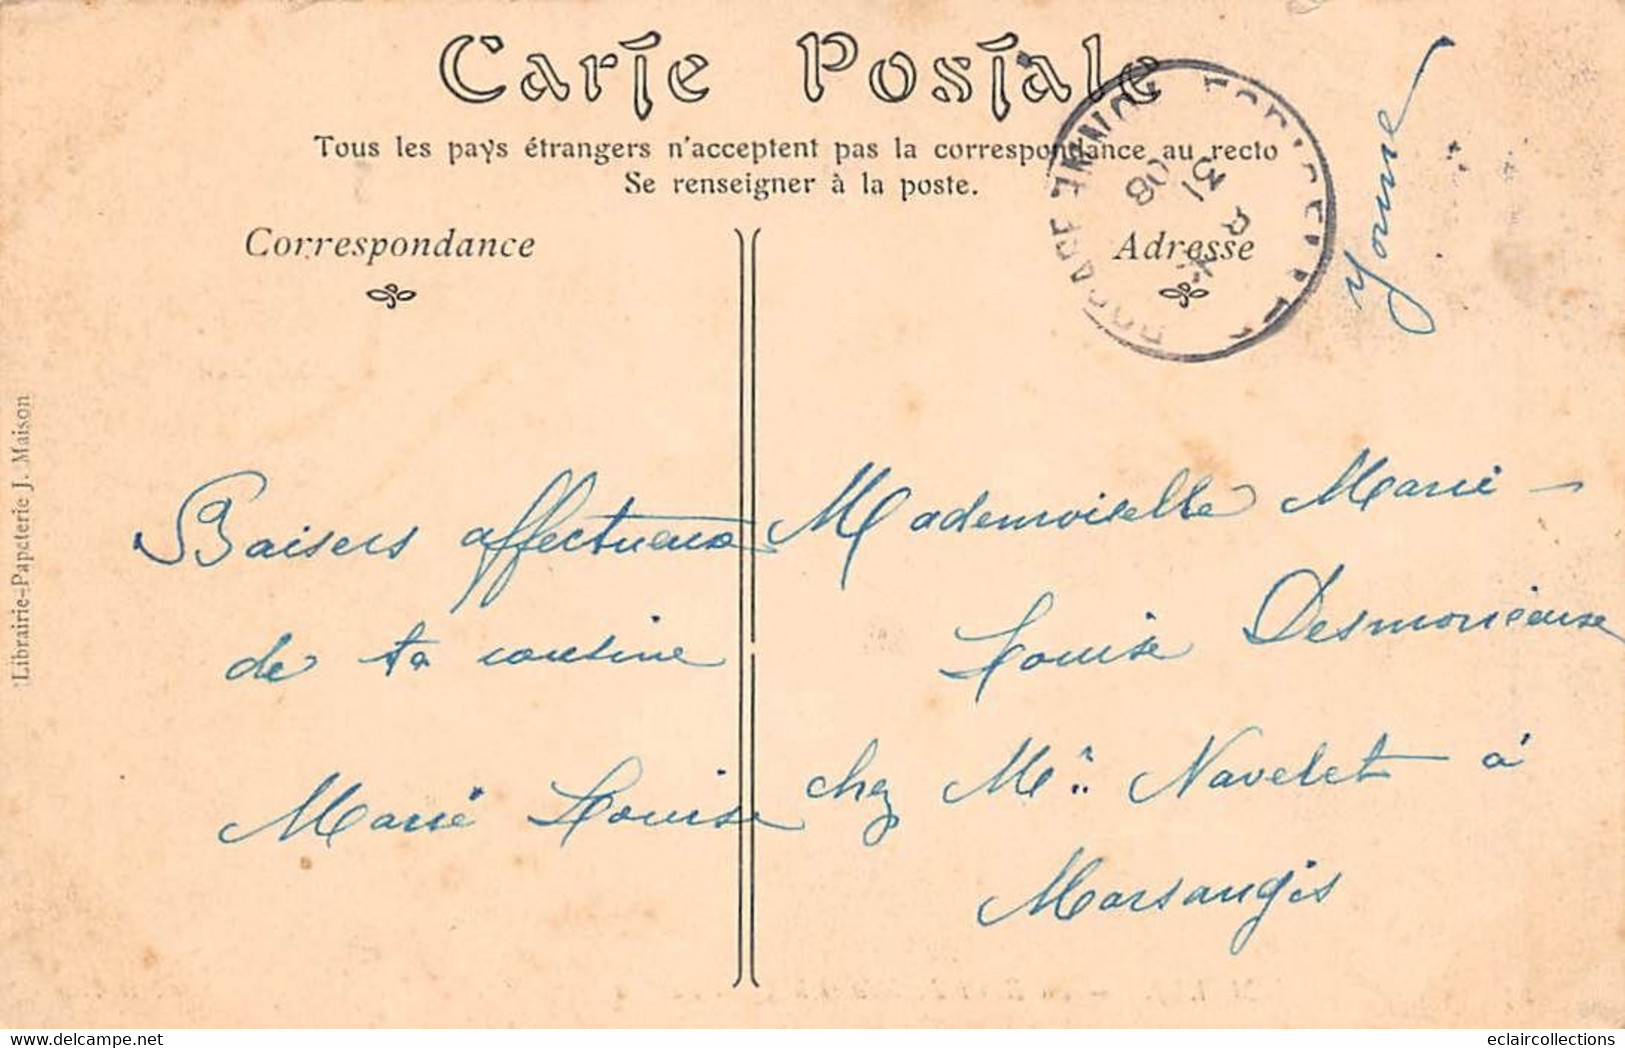 Carte Postale
Tous les pays étrangers n'acceptent pas la correspondance au recto
Se renseigner à la poste.
Correspondance
Adresse
31 8
08
Yonne
Librairie-Papeterie J. Maison
Baisers affectueux
de ta cousine
Marie Louise
Mademoiselle Marie-
Louise
chez Mr Navelet à
Marsangis
eclaircollections